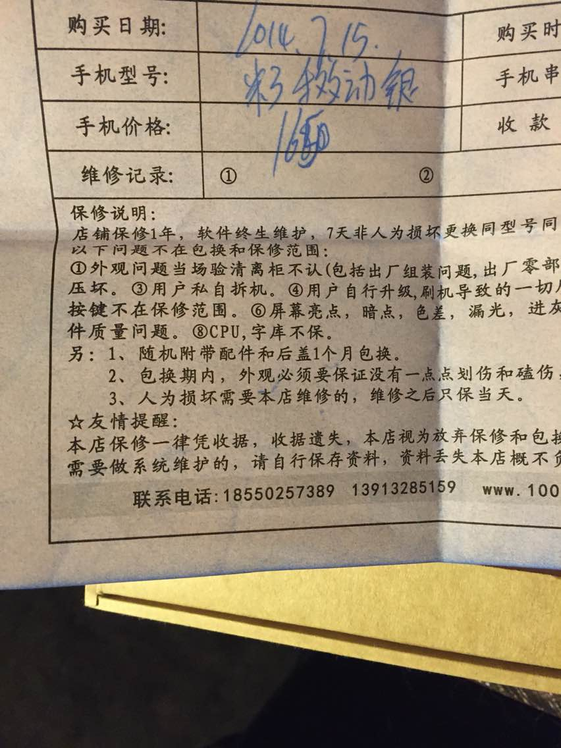 购买日期: 2014.7.15. 购买时
手机型号: 米3移动银 手机串
手机价格: 1650 收款
维修记录: ① ②
保修说明:
店铺保修1年，软件终生维护，7天非人为损坏更换同型号同
以下问题不在包换和保修范围:
①外观问题当场验清离柜不认(包括出厂组装问题,出厂零部
压坏。③用户私自拆机。④用户自行升级,刷机导致的一切
按键不在保修范围。⑥屏幕亮点，暗点，色差，漏光，进灰
件质量问题。⑧CPU,字库不保。
另: 1、随机附带配件和后盖1个月包换。
2、包换期内，外观必须要保证没有一点点划伤和磕伤
3、人为损坏需要本店维修的，维修之后只保当天。
☆友情提醒:
本店保修一律凭收据，收据遗失，本店视为放弃保修和包换
需要做系统维护的，请自行保存资料，资料丢失本店概不负
联系电话:18550257389 13913285159 www.100